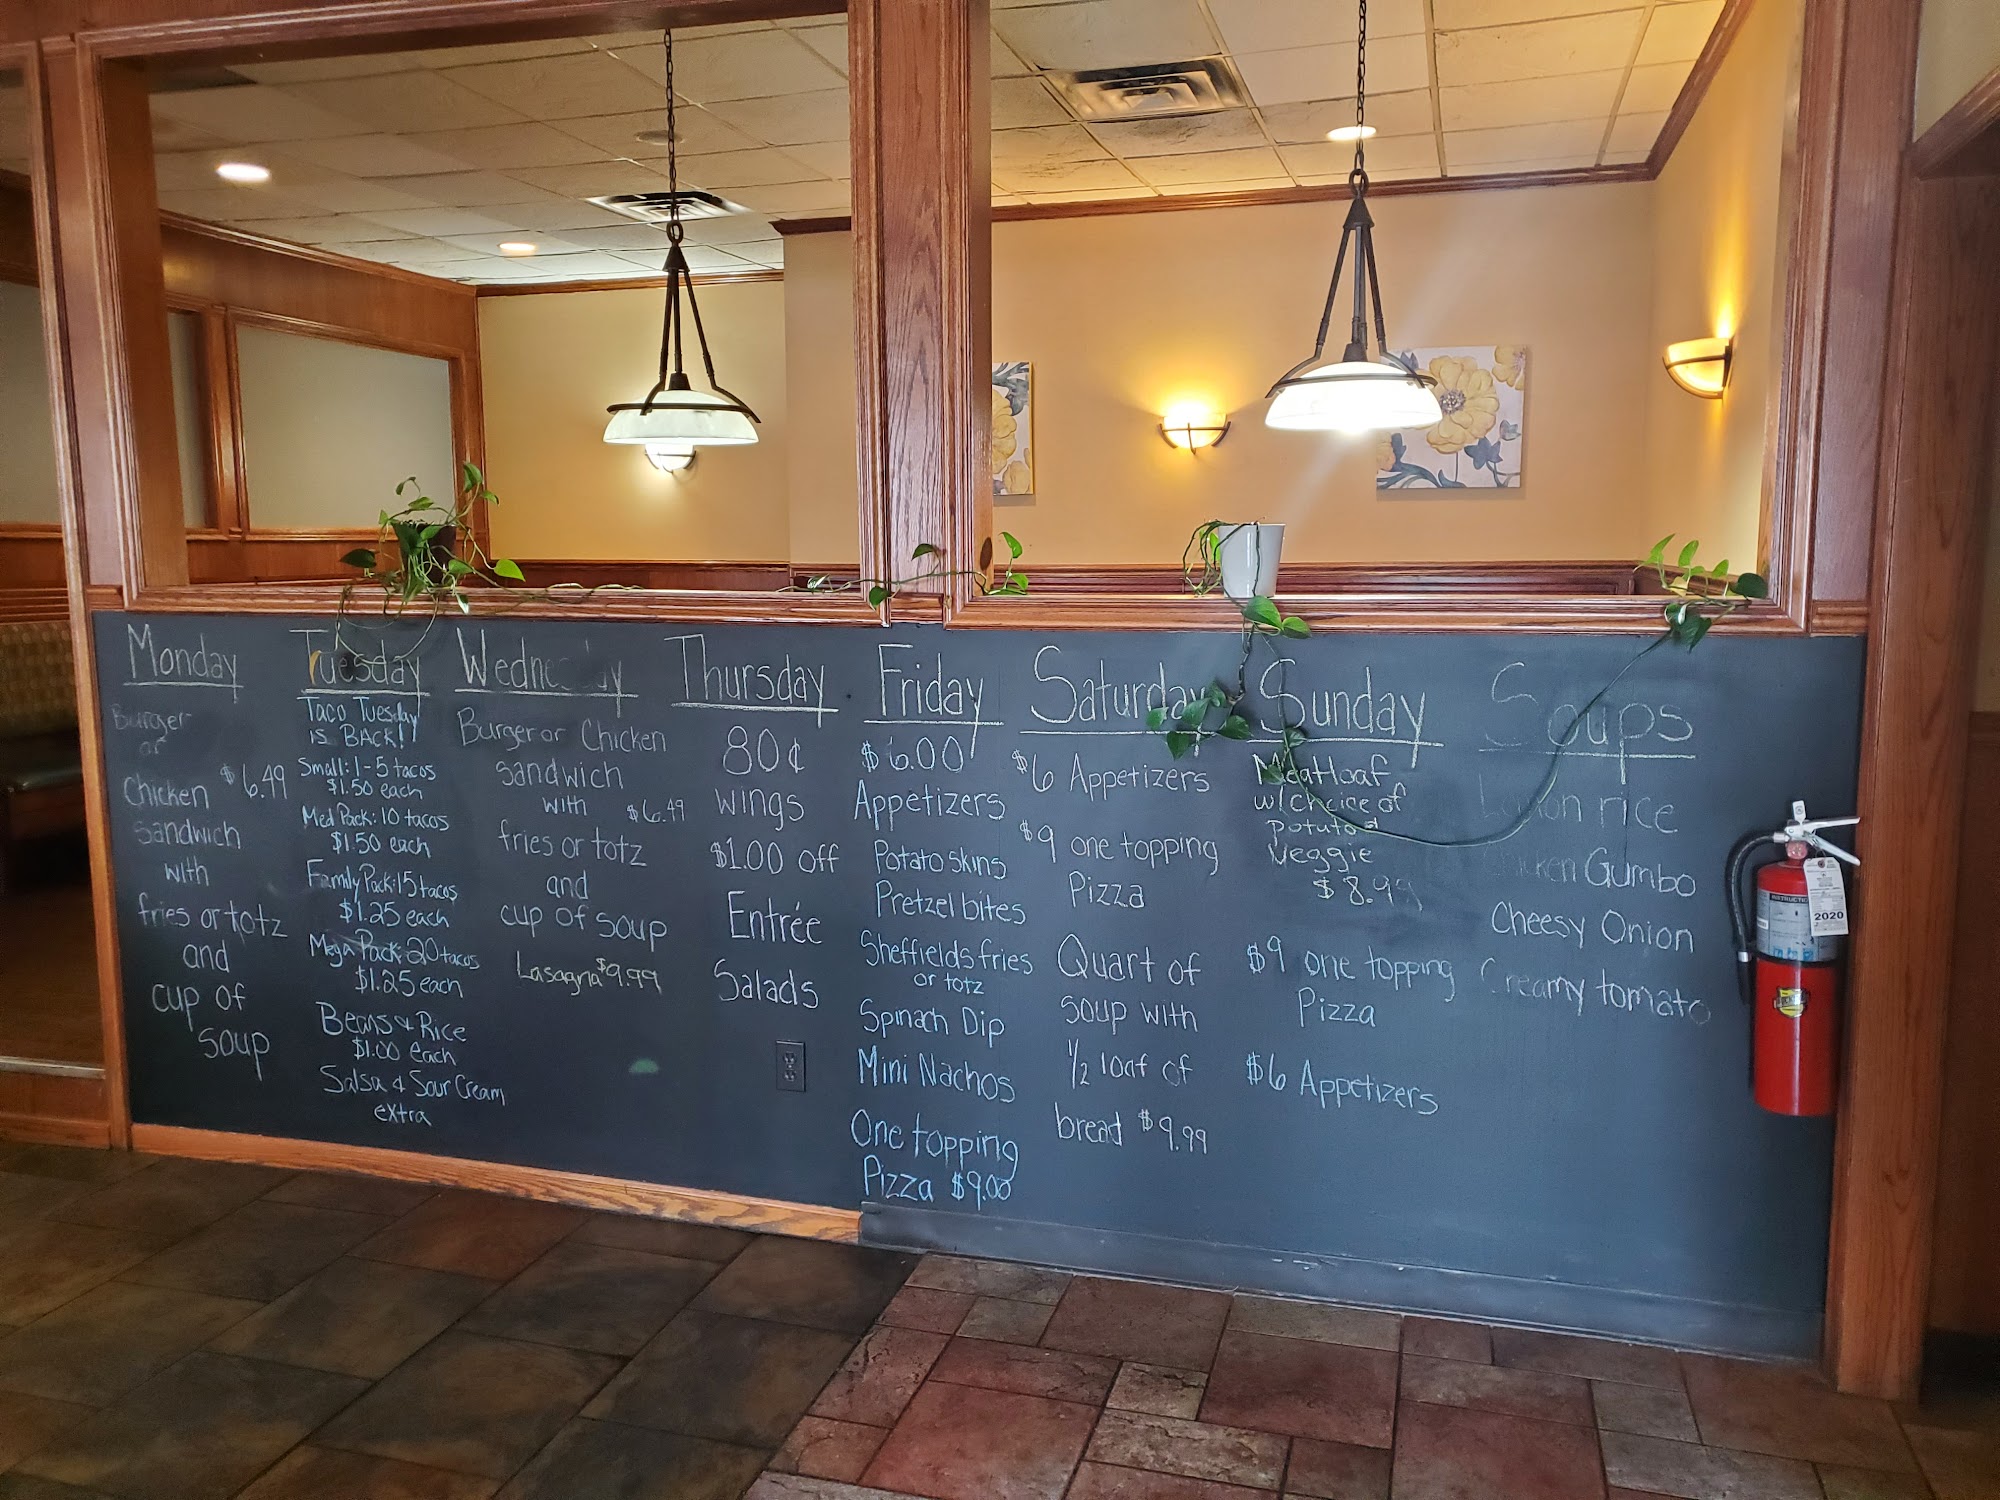 Monday
Burger
or
Chicken $6.49
sandwich
with
fries or totz
and
cup of
soup
Tuesday
Taco Tuesday
is BACK!
Small: 1-5 tacos
$1.50 each
Med Pack: 10 tacos
$1.50 each
Family Pack: 15 tacos
$1.25 each
Mega Pack: 20 tacos
$1.25 each
Beans & Rice
$1.00 each
Salsa & Sour Cream
extra
Wednesday
Burger or Chicken
sandwich
with $6.49
fries or totz
and
cup of soup
Lasagna $9.99
Thursday
80¢
wings
$1.00 off
Entrée
Salads
Friday
$6.00
Appetizers
Potato skins
Pretzel bites
Sheffields fries
or totz
Spinach Dip
Mini Nachos
One topping
Pizza $9.00
Saturday
$6 Appetizers
$9 one topping
Pizza
Quart of
soup with
1/2 loaf of
bread $9.99
Sunday
Meatloaf
w/choice of
Potato &
Veggie
$8.99
$9 one topping
Pizza
$6 Appetizers
Soups
Lemon rice
Chicken Gumbo
Cheesy Onion
Creamy tomato
2020